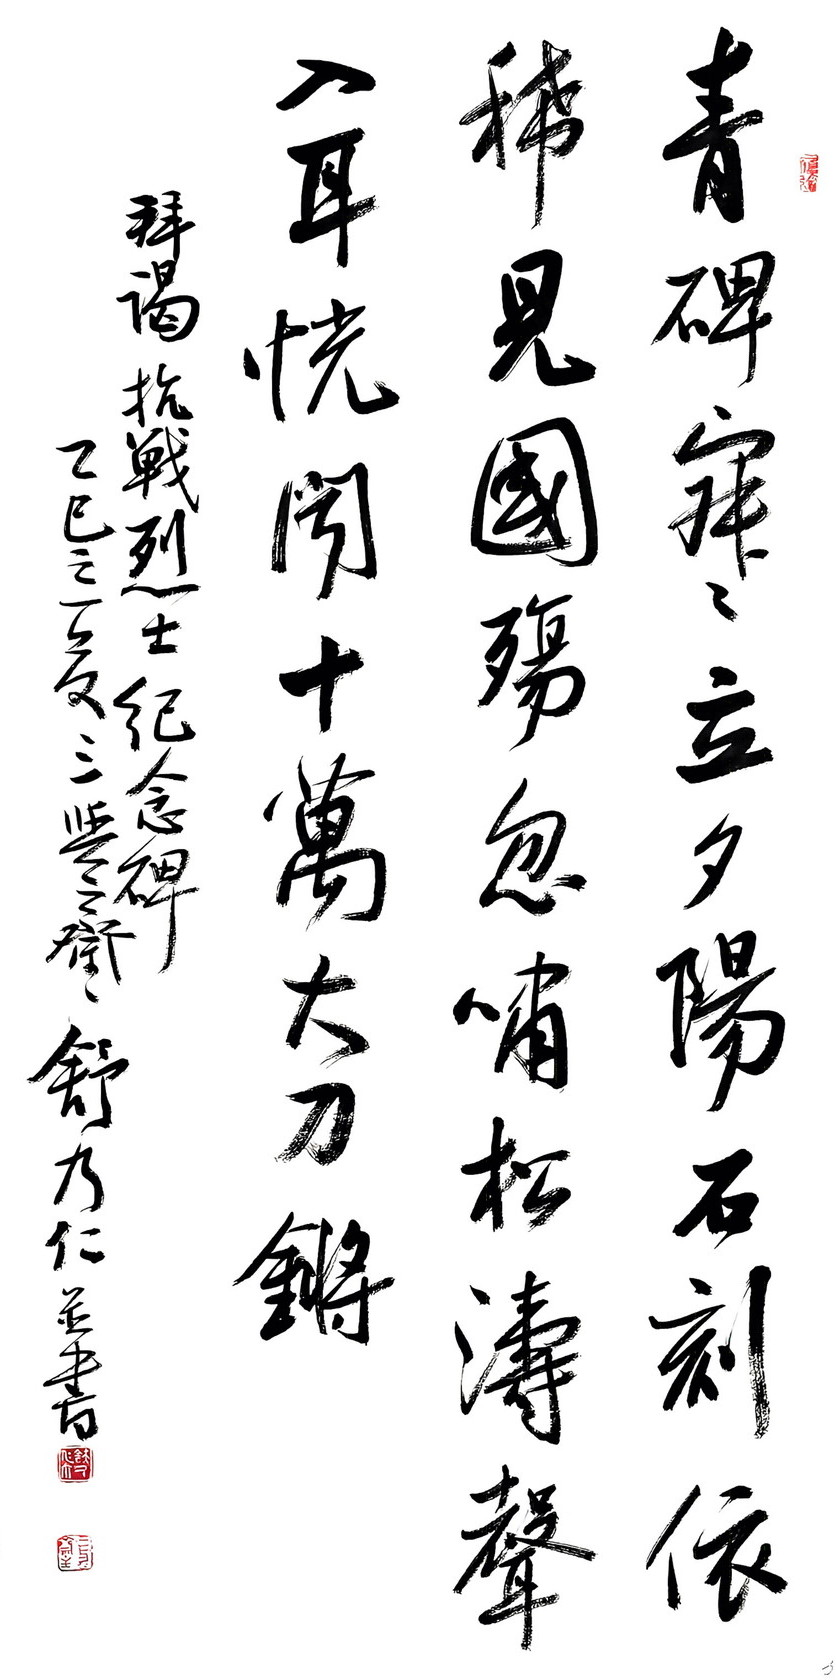 青碑寂〻立夕陽石刻依
稀見國殤忽嘯松濤聲
入耳恍聞十萬大刀鏘
拜謁抗戰烈士紀念碑
乙巳立夏三 舒乃仁並書